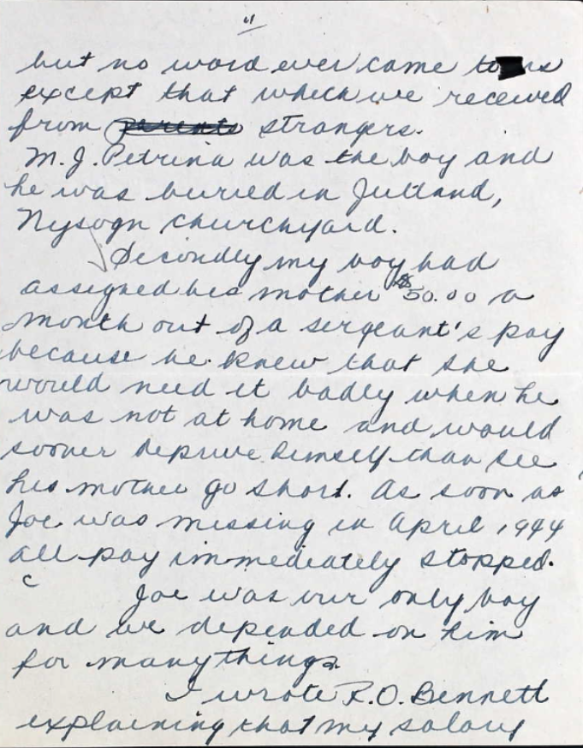 "
but no word ever came to us
except that which we received
from parents strangers.
M. J. Petrina was the boy and
he was buried in Jutland,
Nysogn Churchyard.
Secondly my boy had
assigned his mother $50.00 a
month out of a sergeant's pay
because he knew that she
would need it badly when he
was not at home and would
sooner deprive himself than see
his mother go short. As soon as
Joe was missing in April 1944
all pay immediately stopped.
c
Joe was our only boy
and we depended on him
for many things
I wrote R.O. Bennett
explaining that my salary